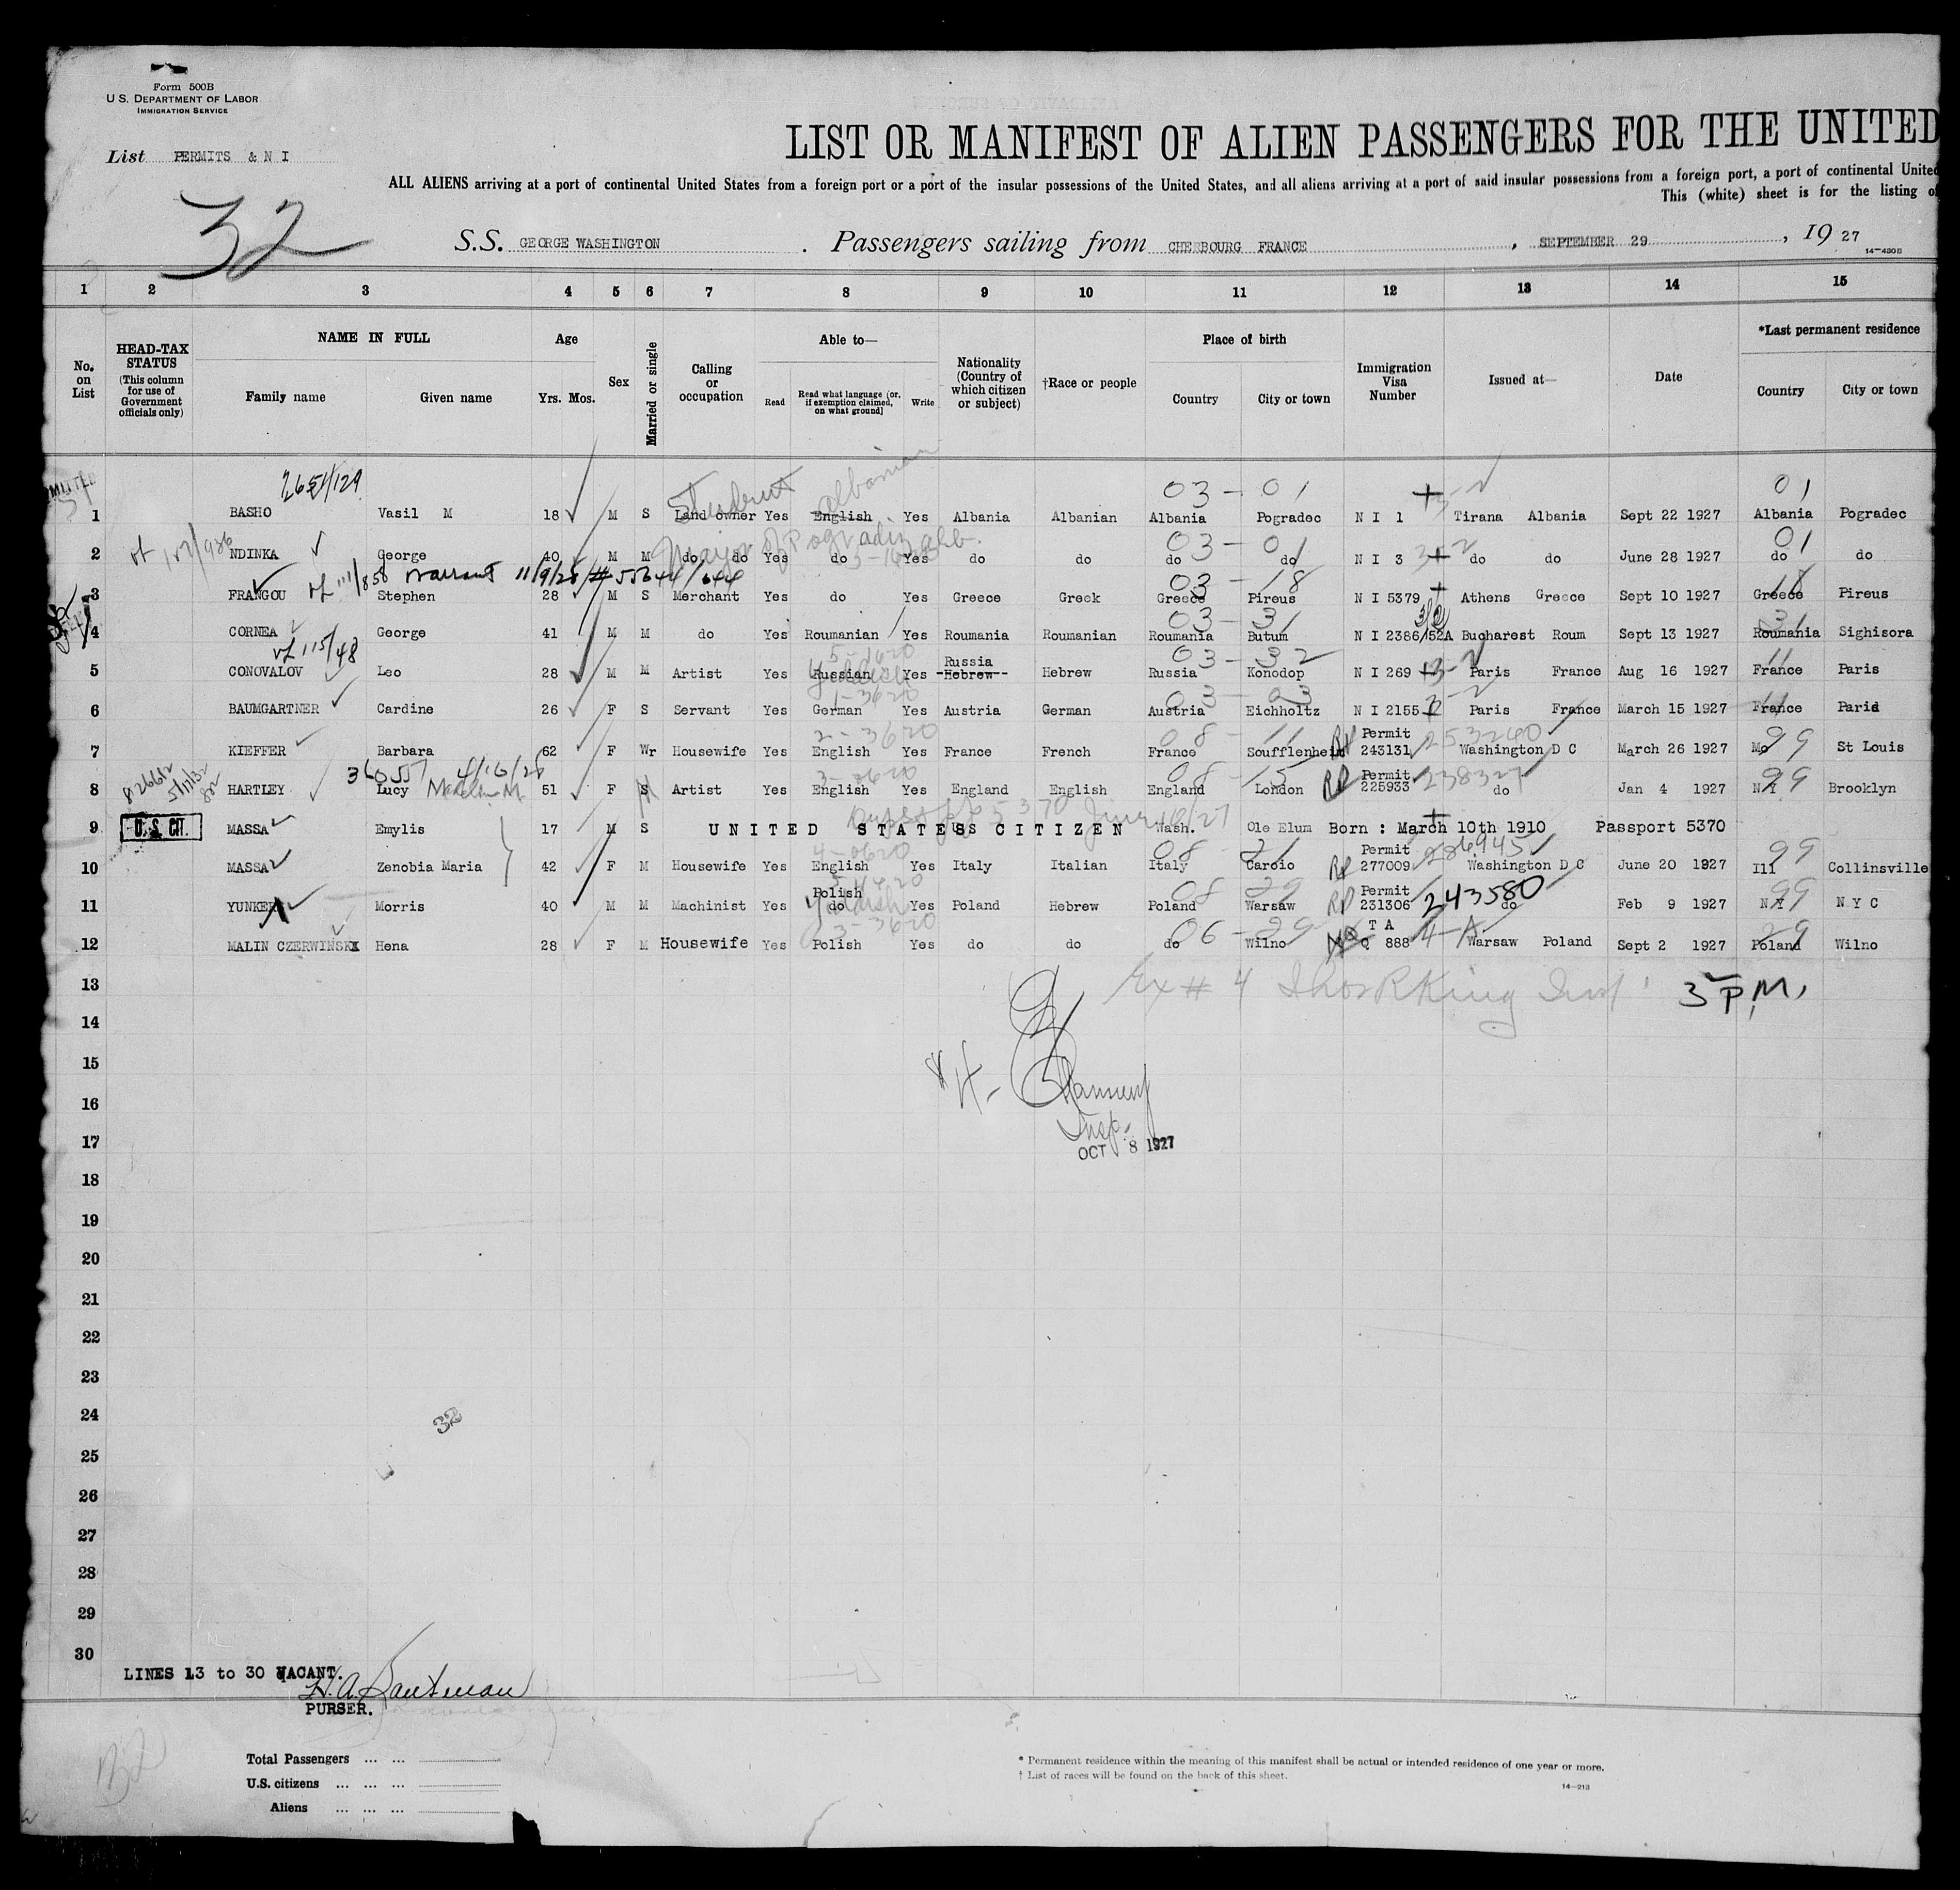 Form 500B
U. S. DEPARTMENT OF LABOR
IMMIGRATION SERVICE
List PERMITS & N I
32
LIST OR MANIFEST OF ALIEN PASSENGERS FOR THE UNITED
ALL ALIENS arriving at a port of continental United States from a foreign port or a port of the insular possessions of the United States, and all aliens arriving at a port of said insular possessions from a foreign port, a port of continental United
This (white) sheet is for the listing of
S.S. GEORGE WASHINGTON . Passengers sailing from CHERBOURG FRANCE , SEPTEMBER 29 , 19 27
14-430B
1 2 3 4 5 6 7 8 9 10 11 12 13 14 15
No. on List
HEAD-TAX STATUS (This column for use of Government officials only)
NAME IN FULL
Family name Given name
Age
Yrs. Mos.
Sex
Married or single
Calling or occupation
Able to—
Read Read what language (or, if exemption claimed, on what ground) Write
Nationality (Country of which citizen or subject)
†Race or people
Place of birth
Country City or town
Immigration Visa Number
Issued at—
Date
*Last permanent residence
Country City or town
Student Albanian 03 - 01 01
1 BASHO Vasil M 18 M S Land owner Yes English Yes Albania Albanian Albania Pogradec N I 1 Tirana Albania Sept 22 1927 Albania Pogradec
03 - 01 01
2 NDINKA George 40 M M do do Yes do Yes do do do do N I 3 do do June 28 1927 do do
warrant 11/9/28 # 55644/644 03 - 18 18
3 FRANGOU Stephen 28 M S Merchant Yes do Yes Greece Greek Greece Pireus N I 5379 Athens Greece Sept 10 1927 Greece Pireus
03 - 31 31
4 CORNEA George 41 M M do Yes Roumanian Yes Roumania Roumanian Roumania Butum N I 2386/52A Bucharest Roum Sept 13 1927 Roumania Sighisora
115/48 Yiddish 03 - 32 11
5 CONOVALOV Leo 28 M M Artist Yes Russian Yes Russia Hebrew Hebrew Russia Konodop N I 269 Paris France Aug 16 1927 France Paris
03 - 03 11
6 BAUMGARTNER Cardine 26 F S Servant Yes German Yes Austria German Austria Eichholtz N I 2155 Paris France March 15 1927 France Parid
2-3620 08 - 11 RP 253240 99
7 KIEFFER Barbara 62 F Wr Housewife Yes English Yes France French France Soufflenheim Permit 243131 Washington D C March 26 1927 Mo St Louis
360557 4/16/28 08 - 15 RP 238327 99
8 HARTLEY Lucy 51 F S Artist Yes English Yes England English England London Permit 225933 do Jan 4 1927 N Y Brooklyn
9 U.S. CIT. MASSA Emylis 17 M S UNITED STATES CITIZEN Wash. Ole Elum Born : March 10th 1910 Passport 5370
08 - 21 RP 286945 99
10 MASSA Zenobia Maria 42 F M Housewife Yes English Yes Italy Italian Italy Caroio Permit 277009 Washington D C June 20 1927 Ill Collinsville
Yiddish 08 29 RP 243580 99
11 YUNKER Morris 40 M M Machinist Yes Polish do Yes Poland Hebrew Poland Warsaw Permit 231306 do Feb 9 1927 N Y N Y C
3-3620 06 - 29 4-A 29
12 MALIN CZERWINSKI Hena 28 F M Housewife Yes Polish Yes do do do Wilno T A Q 888 Warsaw Poland Sept 2 1927 Poland Wilno
13
Ex # 4 3 P.M.
14
15
16
Insp.
17
OCT 8 1927
18
19
20
21
22
23
24
32
25
26
27
28
29
30
LINES 13 to 30 VACANT.
PURSER.
32
Total Passengers ... ...
U.S. citizens ... ... ...
Aliens ... ... ...
* Permanent residence within the meaning of this manifest shall be actual or intended residence of one year or more.
† List of races will be found on the back of this sheet.
14-213